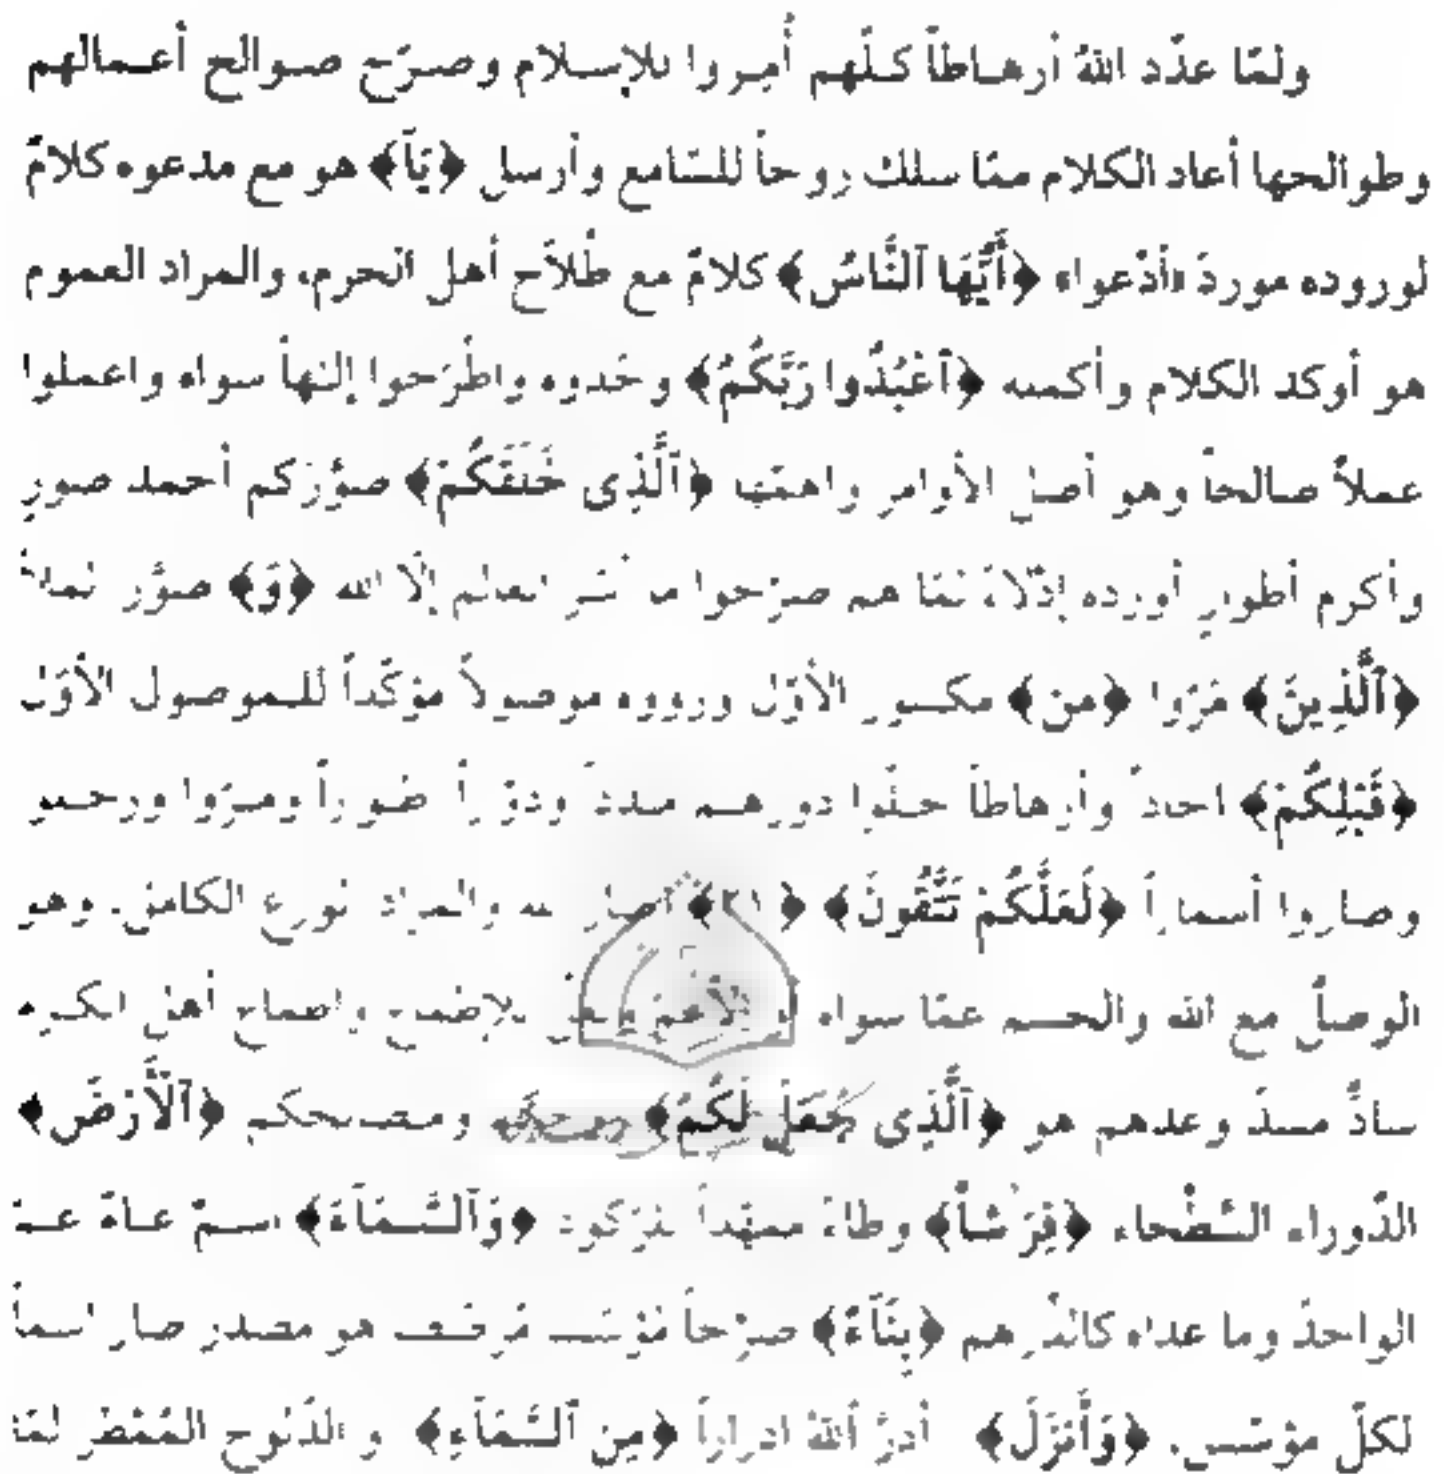 ولمّا عدّد اللهُ أرهاطاً كلّهم أُمِروا للإسلام وصرّح صوالح أعمالهم
وطوالحها أعاد الكلام ممّا سلك روحاً للسّامع وأرسل ﴿يَآ﴾ هو مع مدعوه كلامٌ
لوروده موردَ «أدْعوا» ﴿أَيُّهَا ٱلنَّاسُ﴾ كلامٌ مع طُلاّحِ أهل الحرم، والمراد العموم
هو أوكد الكلام وأكمله ﴿ٱعْبُدُوا رَبَّكُمُ﴾ وحّدوه واطّرحوا إلٰهاً سواه واعملوا
عملاً صالحاً وهو أصل الأوامر واهمّها ﴿ٱلَّذِى خَلَقَكُمْ﴾ صوَّركم أحمد صورٍ
وأكرم أطوارٍ أورده إدّلاءً لمّا هم صرّحوا ما أسَر العالم إلّا الله ﴿وَ﴾ صوَّر
﴿ٱلَّذِينَ﴾ مَرّوا ﴿مِن﴾ مكسور الأوّل ورووه موصولاً مؤكّداً للموصول الأوّل
﴿قَبْلِكُمْ﴾ احاداً وأرهاطاً حلّوا دورهم مدداً ودوّراً وصاروا أسماراً
وصاروا أسماراً ﴿لَعَلَّكُمْ تَتَّقُونَ﴾ ﴿٢١﴾ والمراد الورع الكامل. وهو
الوصل مع الله والحسم عمّا سواه أو الأعمّ للإطماع وإطماع أهل الكرم
سادٌّ مسدّ وعدهم هو ﴿ٱلَّذِى جَعَلَ لَكُمُ﴾ ومصالحكم ﴿ٱلْأَرْضَ﴾
الدّوراء السّطحاء ﴿فِرَٰشاً﴾ وطاءً ممهّداً للرّكود ﴿وَٱلسَّمَآءَ﴾ اسمٌ عامّ عمّ
الواحد وما عداه كالدّرهم ﴿بِنَآءً﴾ صرحاً مؤسّساً هو مصدر صار اسماً
لكلّ مؤسّس. ﴿وَأَنزَلَ﴾ أدرَّ اللهُ ادراراً ﴿مِنَ ٱلسَّمَآءِ﴾ والدّلوح المُمْطر لمّا